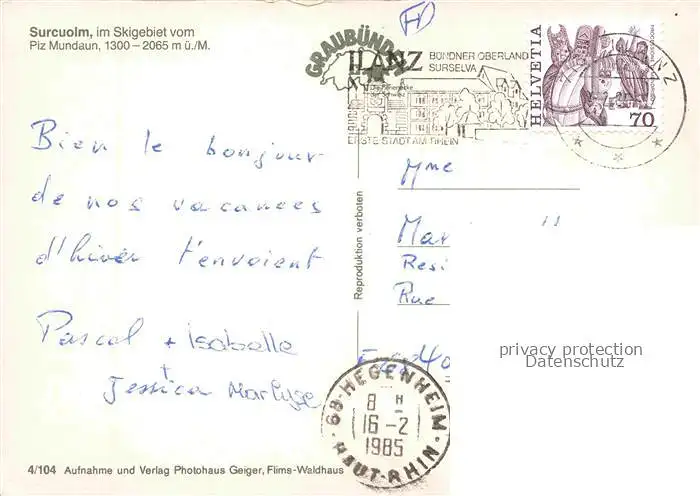 Surcuolm, im Skigebiet vom
Piz Mundaun, 1300 – 2065 m ü./M.
FD
GRAUBÜNDEN
ILANZ BÜNDNER OBERLAND
SURSELVA
Die Ferienecke
der Schweiz
ERSTE STADT AM RHEIN
HELVETIA
70
Bien le bonjour
de nos vacances
d'hiver t'envoient
Pascal + Isabelle
+
Jessica Marlyse
Reproduktion verboten
Mme
Mar
Resi
Rue
68-HEGENHEIM
8 H
16-2
1985
HAUT-RHIN
privacy protection
Datenschutz
4/104 Aufnahme und Verlag Photohaus Geiger, Flims-Waldhaus